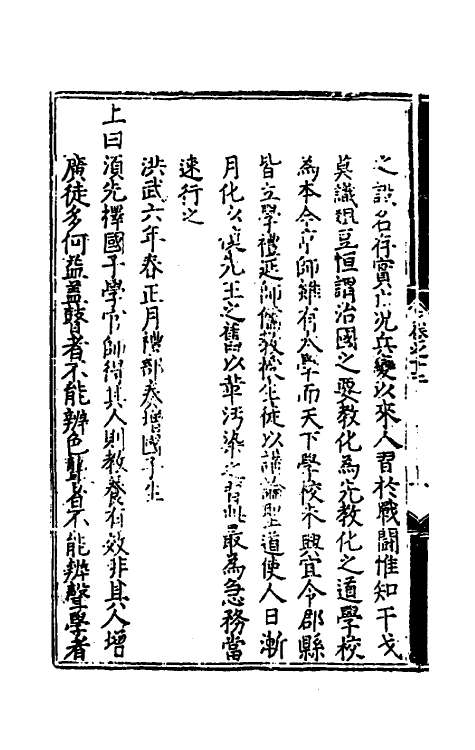 之設名存實亡況兵變以來人習於戰鬪惟知干戈
莫識俎豆恒謂治國之要教化為先教化之道學校
為本今京師雖有太學而天下學校未興宜令郡縣
皆立學禮延師儒教授生徒以講論聖道使人日漸
月化以復先王之舊以革汚染之習此最為急務當
速行之
洪武六年春正月禮部奏增國子生
上曰須先擇國子學官師得其人則教養有效非其人增
廣徒多何益蓋瞽者不能辨色聾者不能辨聲學者